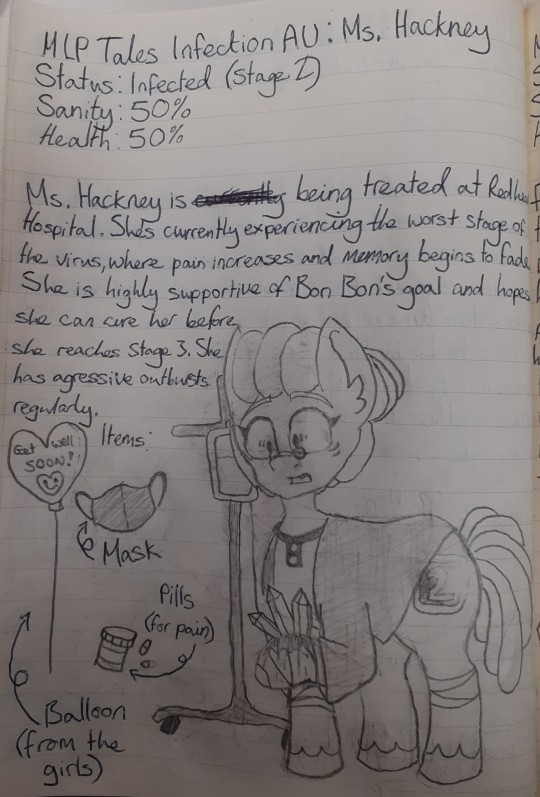 MLP Tales Infection AU: Ms. Hackney
Status: Infected (Stage I)
Sanity: 50%
Health: 50%
Ms. Hackney is being treated at
Hospital. She's currently experiencing the worst stage of
the virus, where pain increases and memory begins to fade.
She is highly supportive of Bon Bon's goal and hopes
she can cure her before
she reaches Stage 3. She
has agressive outbusts
regularly.
Items:
Get well
SOON!
Mask
Pills
(for pain)
Balloon
(from the
girls)